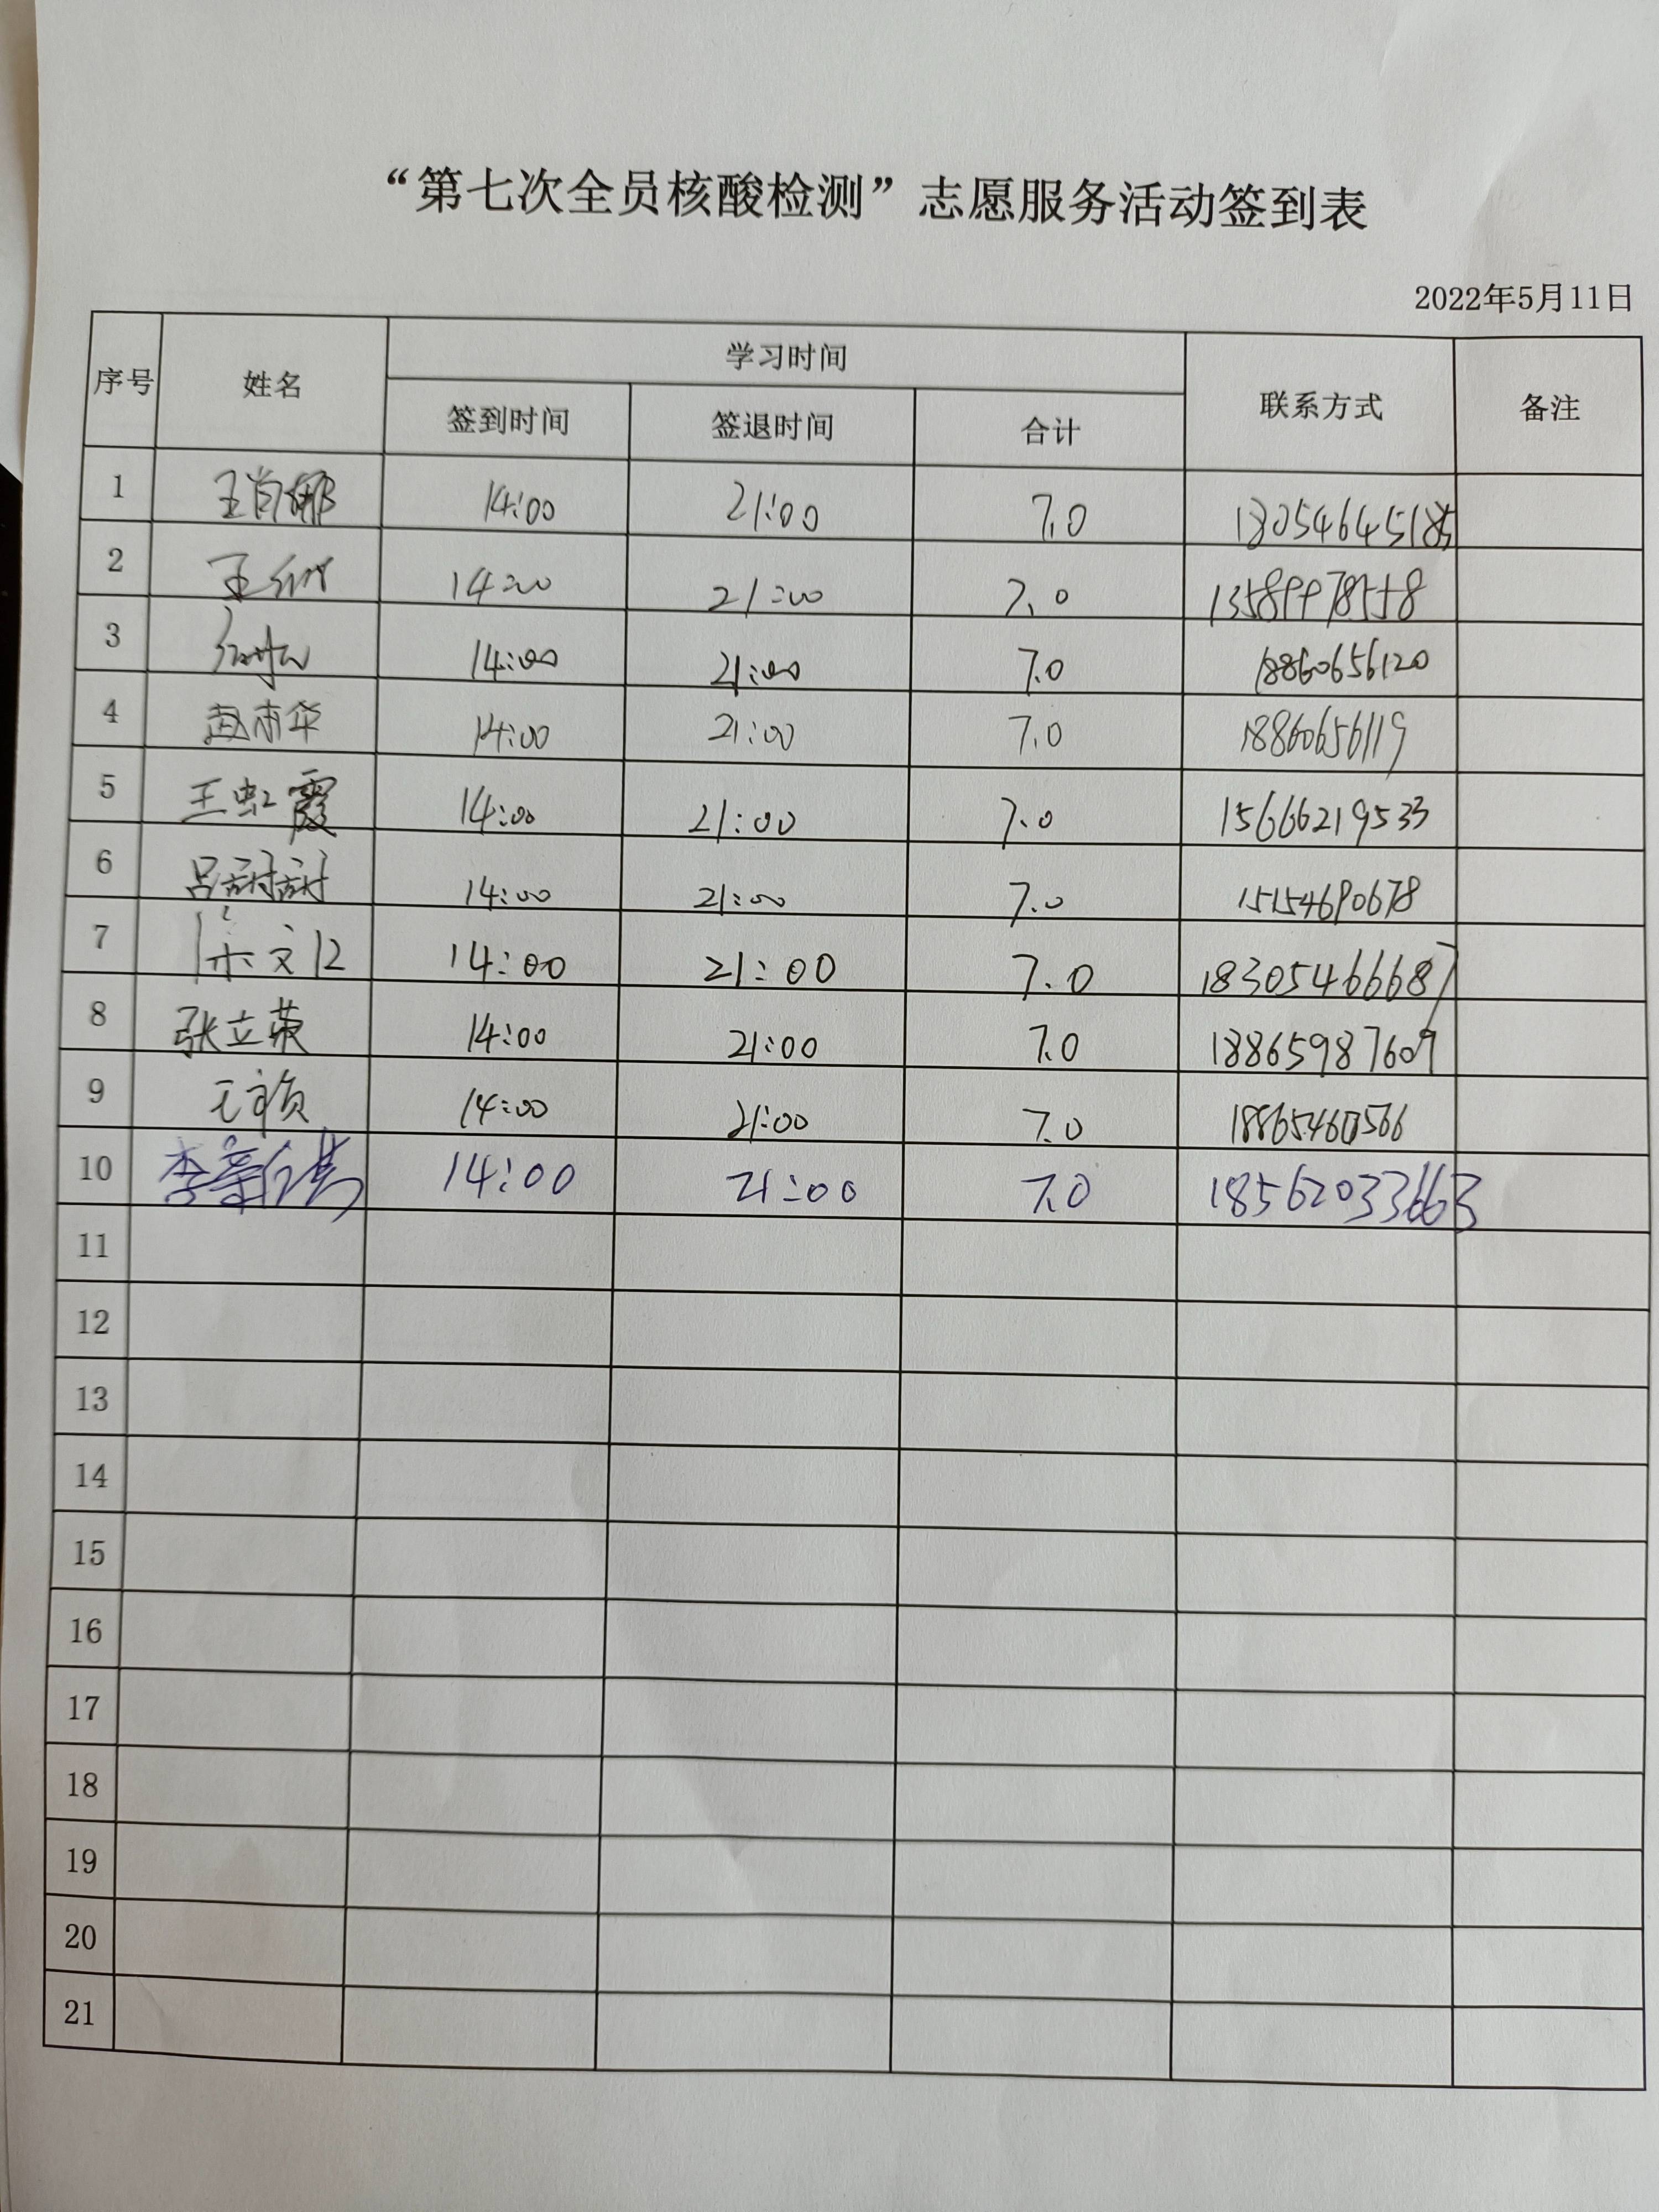 “第七次全员核酸检测”志愿服务活动签到表
2022年5月11日
序号 姓名 学习时间 联系方式 备注
签到时间 签退时间 合计
1 王肖娜 14:00 21:00 7.0 18054645185
2 王 14:00 21:00 7.0 13589978558
3 14:00 21:00 7.0 18860656120
4 赵市华 14:00 21:00 7.0 18860656119
5 王虹霞 14:00 21:00 7.0 15666219533
6 吕 14:00 21:00 7.0 15154690678
7 14:00 21:00 7.0 18305466687
8 张立荣 14:00 21:00 7.0 18865987609
9 14:00 21:00 7.0 18865460566
10 李 14:00 21:00 7.0 18562033663
11
12
13
14
15
16
17
18
19
20
21